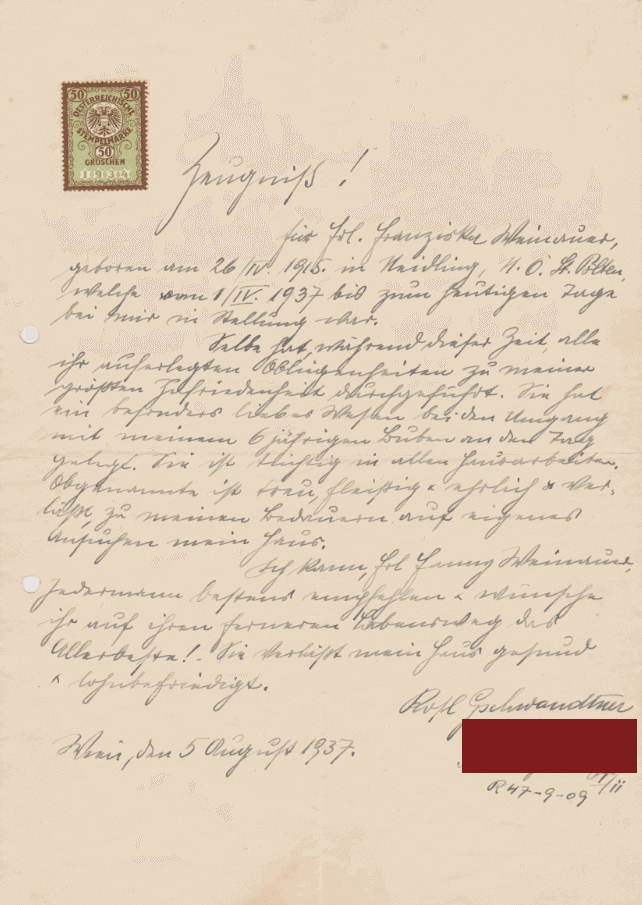 50 50
OESTERREICHISCHE
STEMPELMARKE
50
GROSCHEN
Zeugniß!
für Frl. Franziska Weinauer,
geboren am 26/IV. 1915. in Neidling, N. Ö. St. Pölten,
welche vom 1/IV. 1937 bis zum heutigen Tage
bei mir in Stellung war.
Selbe hat, während dieser Zeit, alle
ihr auferlegten Obliegenheiten zu meiner
größten Zufriedenheit durchgeführt. Sie hat
ein besonders liebes Wesen bei den Umgang
mit meinem 6 jährigen Buben an den Tag
gelegt. Sie ist tüchtig in allen Hausarbeiten.
Obgenannte ist treu, fleißig & ehrlich & ver-
läßt, zu meinen Bedauern auf eigenes
Ansuchen mein Haus.
Ich kann, Frl Fanny Weinauer,
Jedermann bestens empfehlen & wünsche
ihr auf ihren ferneren Lebensweg das
Allerbeste! Sie verläßt mein Haus gesund
& lohnbefriedigt.
Rosl Gschwandtner
Wien, den 5 August 1937.
R 47-9-09